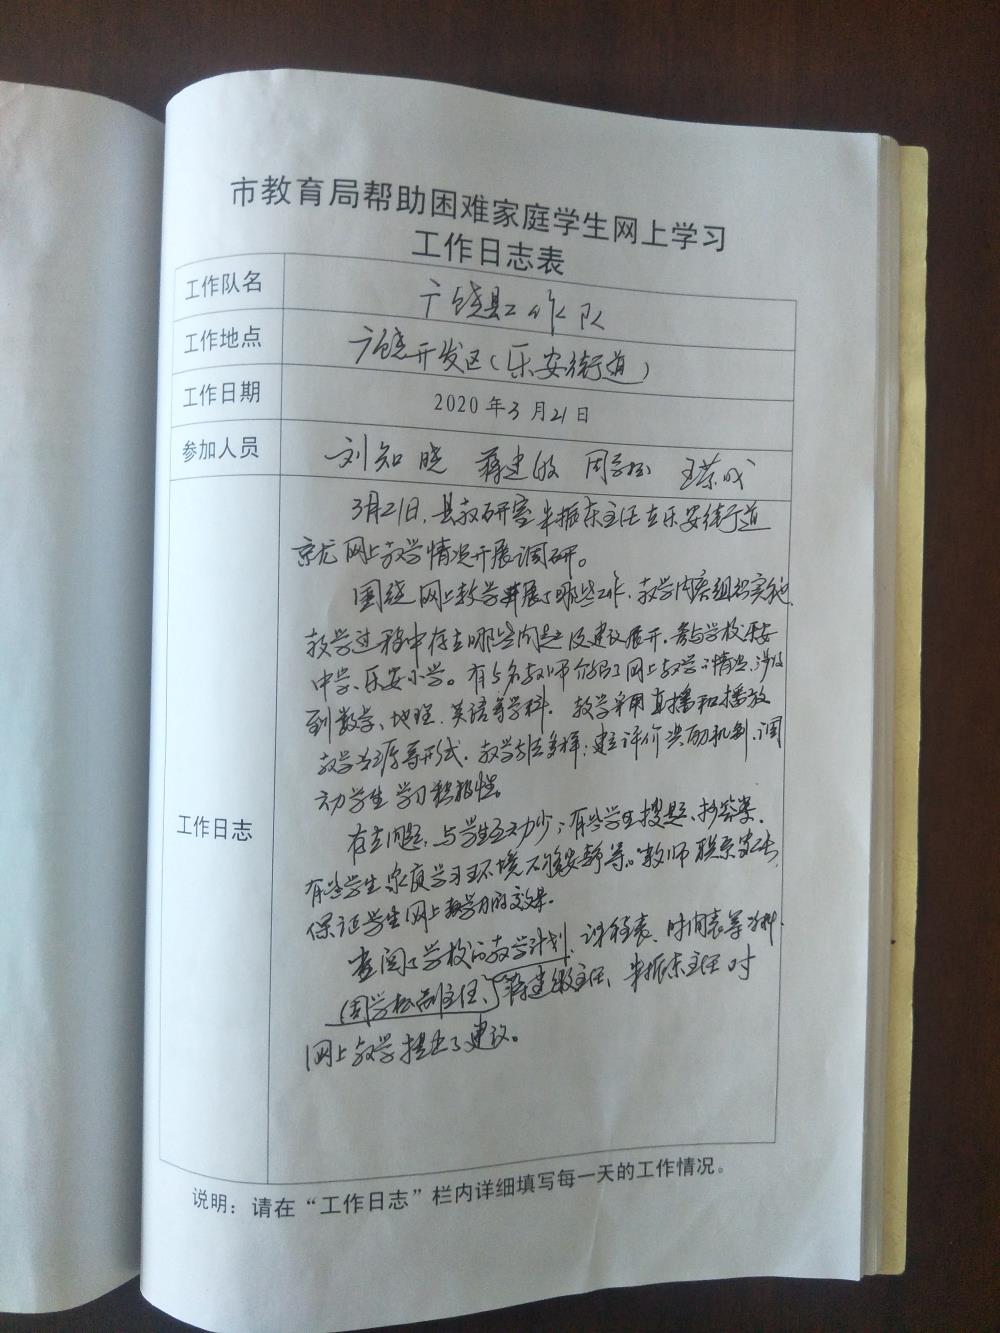 市教育局帮助困难家庭学生网上学习
工作日志表
工作队名 广饶县工作队
工作地点 广饶开发区(乐安街道)
工作日期 2020年3月21日
参加人员 刘知晓 蒋建敏 周学松 王荣成
工作日志
3月21日,县教研室 振东主任在乐安街道
就网上教学情况开展调研。
围绕网上教学开展了哪些工作、教学内容组织实施、
教学过程中存在哪些问题及建议展开,参与学校乐安
中学、乐安小学。有5名教师介绍了网上教学情况,涉及
到数学、地理、英语等学科。教学采用直播和播放
教学视频等形式,教学方法多样;建立评价奖励机制,调
动学生学习积极性。
存在问题,与学生互动少;有些学生搜题、抄答案,
有些学生家庭学习环境不够安静等。教师联系家长,
保证学生网上学习的效果。
查阅了学校的教学计划、课程表、时间表等材料。
(周学松副主任、)蒋建敏主任、 振东主任对
网上教学提出了建议。
说明:请在“工作日志”栏内详细填写每一天的工作情况。